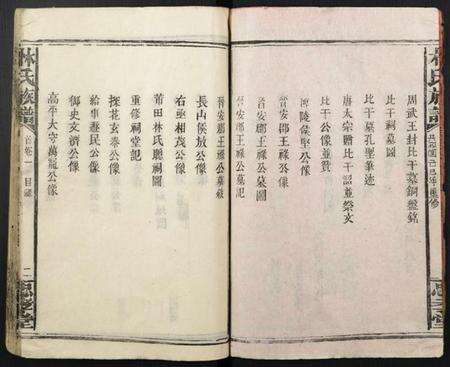 林氏族譜
民國己巳年重修
思孝堂
周武王封比干墓銅盤銘
比干祠墓圖
比干墓孔聖筆迹
唐太宗贈比干詔並祭文
比干公像並贊
博陵侯堅公像
晉安郡王祿公像
晉安郡王祿公墓圖
晉安郡王祿公墓記
晉安郡王祿公墓
長山侯放公像
右丞相茂公像
莆田林氏廳祠圖
重修祠堂記
探花玄泰公像
給事養民公像
御史文濟公像
高平太守萬寵公像
林氏族譜
首卷 目錄
二
思孝堂